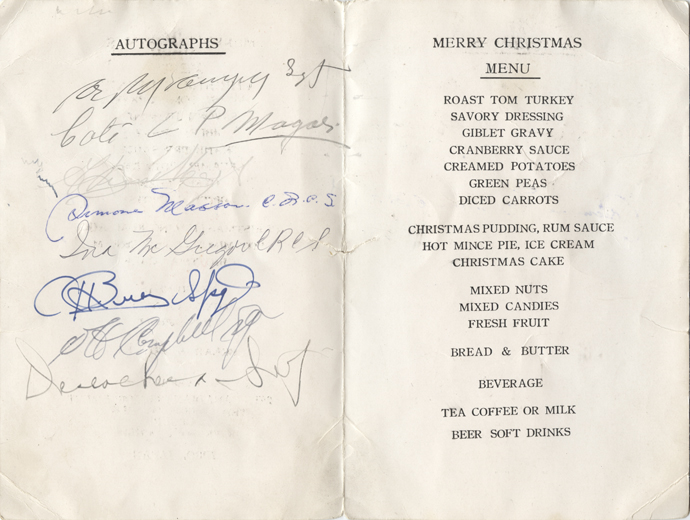 AUTOGRAPHS
Sgt
Coté L P Magar
Simone Masson C.R.C.S
Ina McGregor C R C S
Campbell Sgt
Sgt
MERRY CHRISTMAS
MENU
ROAST TOM TURKEY
SAVORY DRESSING
GIBLET GRAVY
CRANBERRY SAUCE
CREAMED POTATOES
GREEN PEAS
DICED CARROTS
CHRISTMAS PUDDING, RUM SAUCE
HOT MINCE PIE, ICE CREAM
CHRISTMAS CAKE
MIXED NUTS
MIXED CANDIES
FRESH FRUIT
BREAD & BUTTER
BEVERAGE
TEA COFFEE OR MILK
BEER SOFT DRINKS